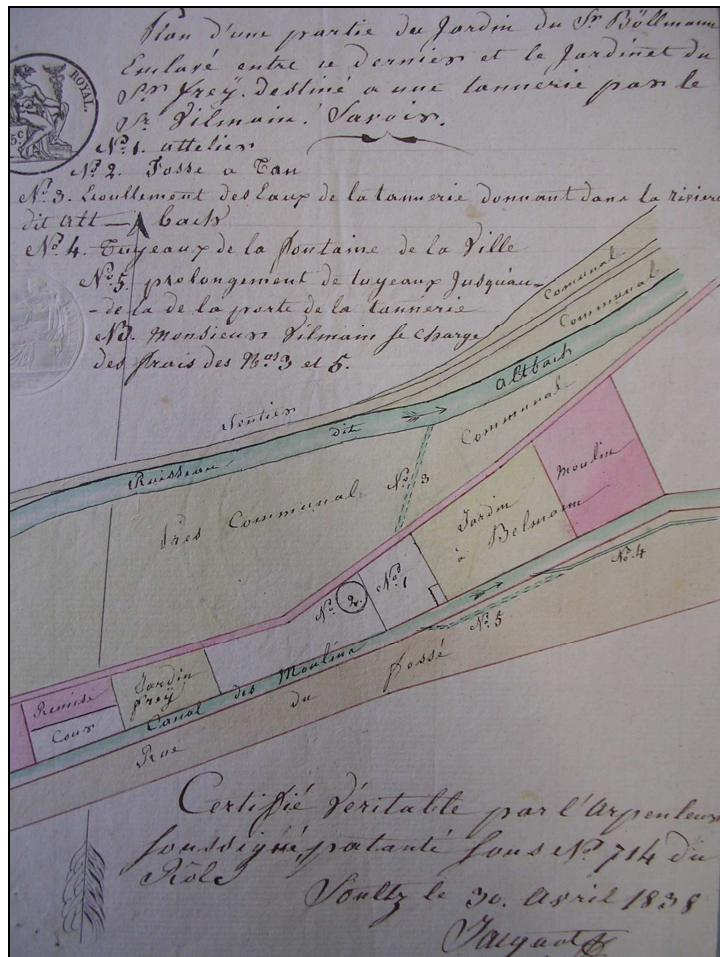 Plan d'une partie du Jardin du Sr. Böllmann
Enclavé entre ce dernier et le Jardinet du
Sr. freÿ. destiné a une tannerie par le
Sr. Vilmain. Savoir.
ROYAL.
5c
No. 1. attelier
No. 2. Fosse a Tan
No. 3. Ecoullement des Eaux de la tannerie donnant dans la riviere
dit Alt-bach
No. 4. Tuyeaux de la fontaine de la Ville
No. 5. prolongement de tuyeaux Jusquau-
-de la de la porte de la tannerie
Monsieur Vilmain se charge
des frais des Nos. 3 et 5.
Comunal
Communal
Sentier
Altbach
dit
Ruisseau
Communal
No. 3
Moulin
Prés Communal
Jardin
à Belmann
No. 4
No. 1
No. 2.
No. 5
Jardin
freÿ
Remise
Cour
Canal des Moulins
Rue du fossé
Certifié Véritable par l'Arpenteur
soussigné, patanté sous No. 714 du
Rôle
Soultz le 30. Avril 1838
Jacquot